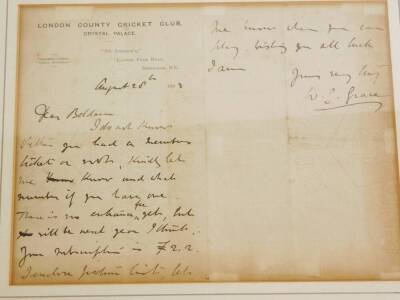 LONDON COUNTY CRICKET CLUB.
CRYSTAL PALACE.
"St. Andrew's,"
Lawrie Park Road,
Sydenham, S.E.
August 28th
Dear
I do not know
you had a members
ticket or not, Kindly let
me know and what
number if you have one.
There is no entrance fee yet, but
will be next year I think.
Your subscription is £2.2.
let
me know when you can
play. Wishing you all luck
I am
Yours very truly
W. G. Grace